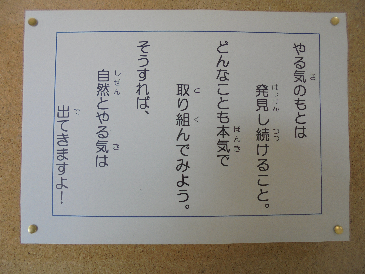 やる気のもとは
発見し続けること。
どんなことも本気で
取り組んでみよう。
そうすれば、
自然とやる気は
出てきますよ！